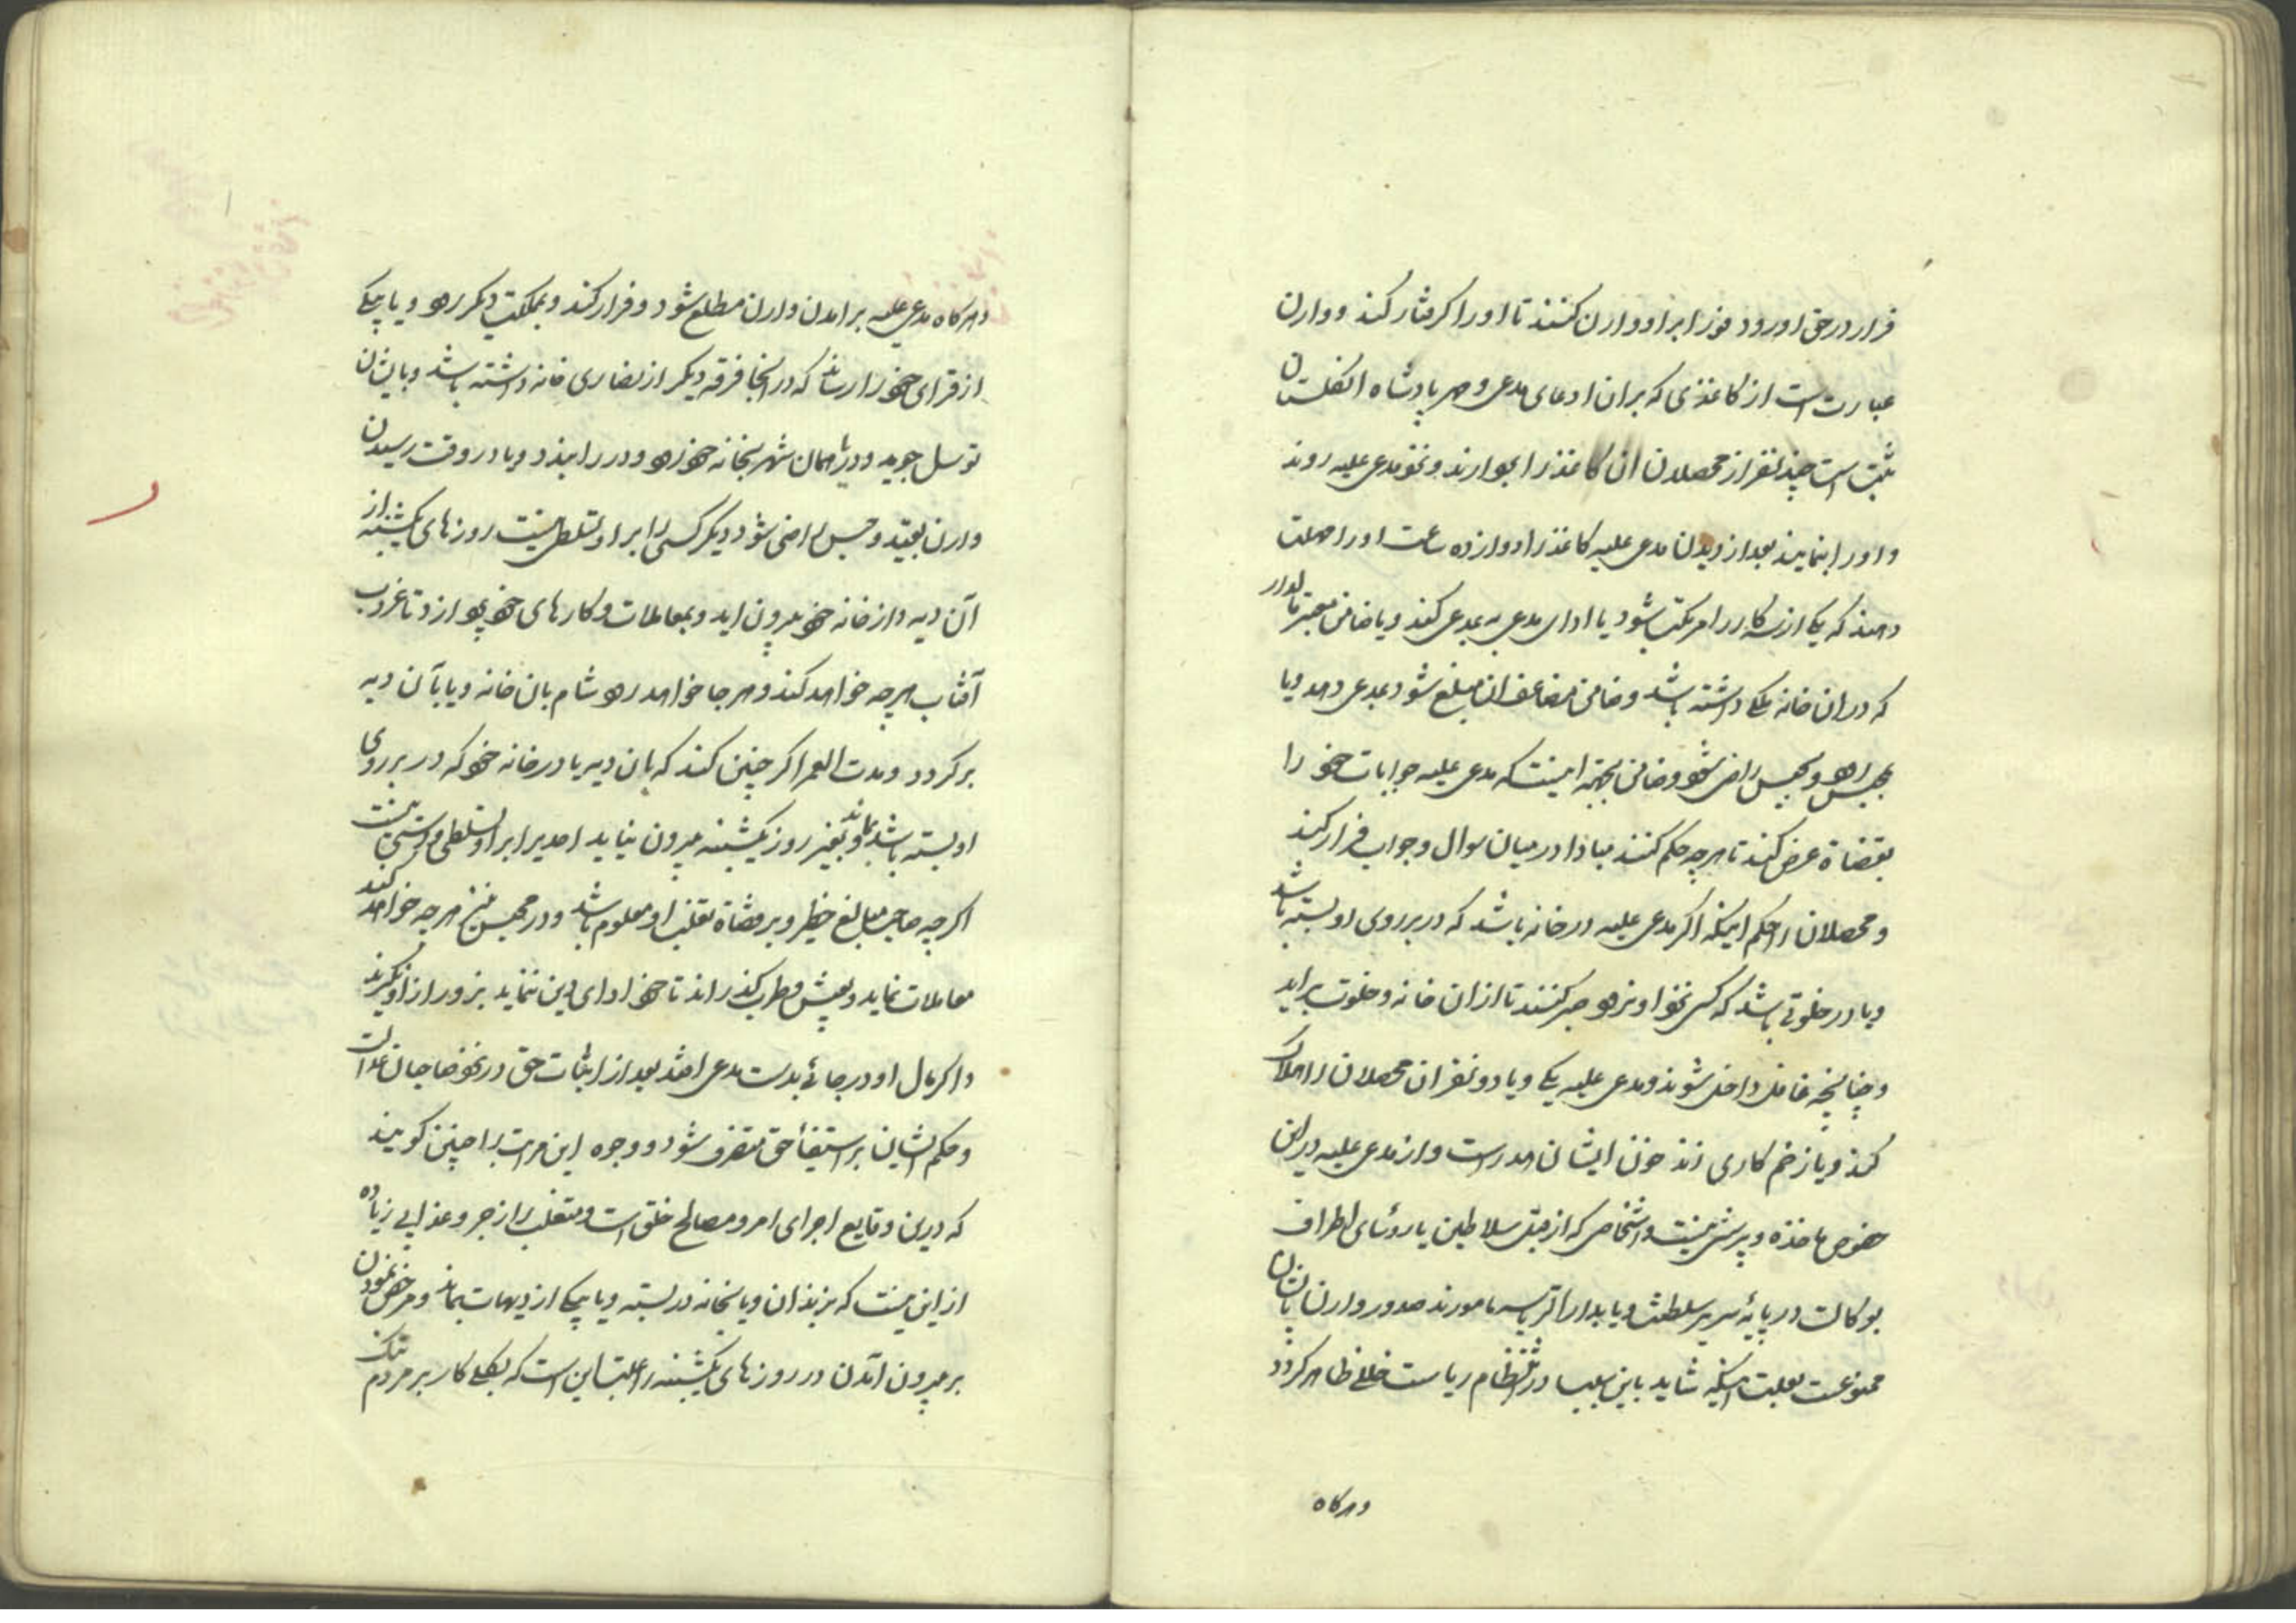 فرار در حق او رود فورا بر او وارن کنند تا او را کرفتار کند و وارن
عبارت است از کاغذی که بران ادعای مدعی و مهر پادشاه انکلستان
ثبت است چند نفر از محصلان ان کاغذ را بردارند و نزد مدعی علیه روند
و او را بنمایند بعد از دیدن مدعی علیه کاغذ را دوازده ساعت او را مهلت
دهند که یکی از سه کار را مرتکب شود یا ادای مدعی به بمدعی کند و یا ضامن معتبر مالدار
که در ان خانه ملکی داشته باشد و ضامن مضاعف ان مبلغ شود بمدعی دهد و یا
بحبس راضی شود و ضامن بجهة اینست که مدعی علیه جوابات خود را
بقضاة عرض کند تا هرچه حکم کنند مبادا در میان سوال و جواب فرار کند
و محصلان را حکم اینکه اکر مدعی علیه در خانه باشد که در بر روی او بسته باشد
و یا در خلوتی باشد که کسی نزد او نرود صبر کنند تا از ان خانه و خلوت براید
و چنانچه غافل داخل شوند و مدعی علیه یکی و یا دو نفر ان محصلان را هلاک
کند و یا زخم کاری زند خون ایشان هدر است و از مدعی علیه در این
خصوص مواخذه و پرسش نیست و اشخاصی که از قبل سلاطین یا روسای اطراف
بوکالت در پایه سریر سلطنت و یا بدار الریاسه مامورند صدور وارن بایشان
ممنوعست بعلت اینکه شاید باین سبب در انتظام ریاست خللی ظاهر کردد
و هرکاه
و هرکاه مدعی علیه بر امدن وارن مطلع شود و فرار کند و بمملکت دیکر رود و یا بیکی
از قرای خود را رساند که در انجا فرقه دیکر از نصاری خانه داشته باشد و بایشان
توسل جوید و یا در همان شهر بخانه خود رود و در را ببندد و یا در وقت رسیدن
وارن بقید و حبس راضی شود دیکر کسی را بر او تسلطی نیست روزهای یکشنبه از
آن دیه و از خانه خود بیرون اید و بمعاملات و کارهای خود پردازد تا غروب
آفتاب هرچه خواهد کند و هرجا خواهد رود شام بان خانه و یا بآن دیه
برکردد و مدت العمر اکر چنین کند که بان دیه یا در خانه خود که در بر روی
او بسته باشد بماند و بغیر روز یکشنبه بیرون نیاید احدیرا بر او تسلطی و دستی نیست
اکر چه صاحب مبالغ خطیر و بر قضاة تقلب او معلوم باشد و در محبس نیز هرچه خواهد کند
معاملات نماید و بعیش و طرب کذراند تا خود ادای دین ننماید بزور از او نکیرند
و اکر مال او در جائی بدست مدعی افتد بعد از اثبات حق در نزد صاحبان عدالت
و حکم ایشان بر استیفا حق متصرف شود و وجوه این مراتب را چنین کویند
که در این وقایع اجرای امر و مصالح خلق است و متقلب را زجر و عذابی زیاده
از این نیست که بزندان و یا بخانه در بسته و یا بیکی از دیهات بماند و مرخص نمودن
بر بیرون آمدن در روزهای یکشنبه را علت این است که بکلی کار بر مردم تنک